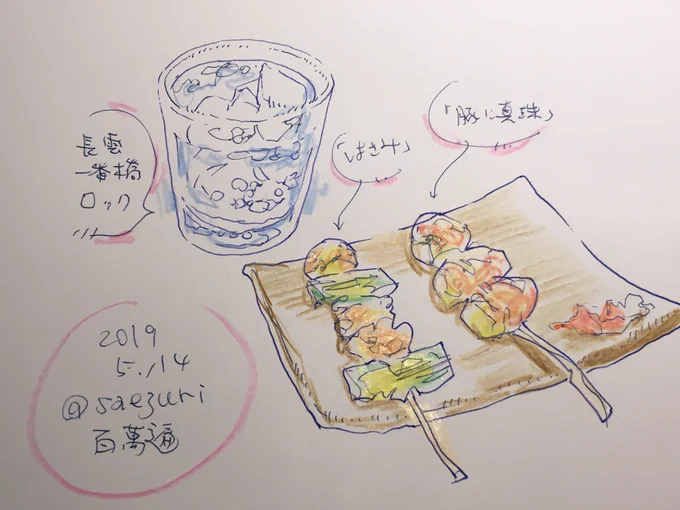 長雲
一番橋
ロック
「はさみ」
「豚に真珠」
2019
5.14
@saezuri
百萬遍